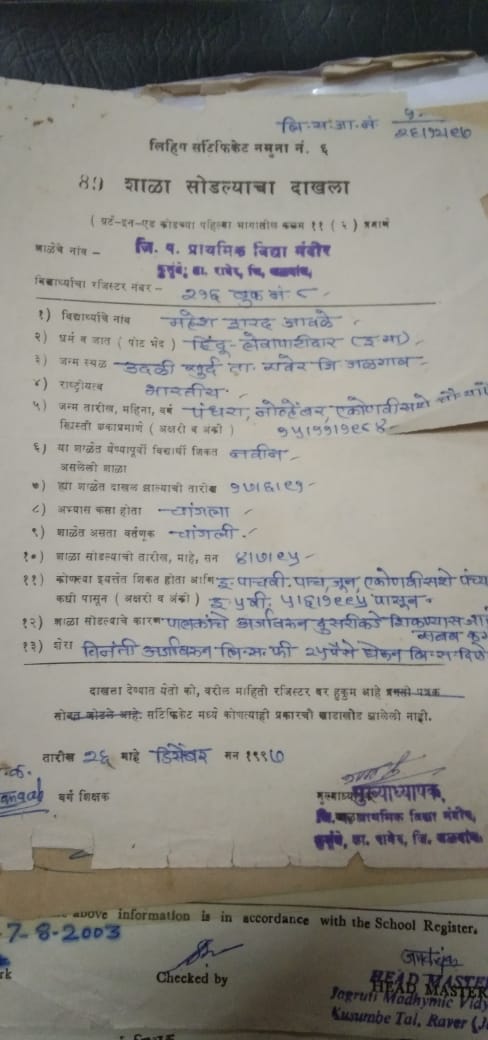 लि.स.जा.नं. ५
२६।१२।९७
लिहिंग सर्टिफिकेट नमुना नं. ६
शाळा सोडल्याचा दाखला
( ग्रँट-इन-एड कोडच्या पहिल्या भागातील कलम ११ ( ६ ) प्रमाणे
शाळेचे नांव – जि. प. प्राथमिक विद्या मंदीर
कुसुंबे, ता. रावेर, जि. जळगांव.
विद्यार्थ्याचा रजिस्टर नंबर – २१६ बुक नं ८
१) विद्यार्थ्याचे नांव महेश शरद आवळे
२) धर्म व जात ( पोट भेद ) हिंदू-
३) जन्म स्थळ उदळी खुर्द ता. रावेर जि जळगाव
४) राष्ट्रीयत्व भारतीय.
५) जन्म तारीख, महिना, वर्ष पंधरा, नोव्हेंबर, एकोणवीसशे
ख्रिस्ती शकाप्रमाणे ( अक्षरी व अंकी ) १५।११।१९८४
६) या शाळेत येण्यापूर्वी विद्यार्थी शिकत नवीन -
असलेली शाळा
७) ह्या शाळेत दाखल झाल्याची तारीख १७।६।९१-
८) अभ्यास कसा होता - चांगला
९) शाळेत असता वर्तणूक - चांगली.
१०) शाळा सोडल्याची तारीख, माहे, सन ४।७।९५-
११) कोणत्या इयत्तेत शिकत होता आणि इ. पाचवी. पाच, जून, एकोणवीसशे पंच्या
कधी पासून ( अक्षरी व अंकी ) इ. ५वी. ५।६।१९९५ पासून.
१२) शाळा सोडल्याचे कारण पालकांचे अर्जावरून दुसरीकडे शिकण्यास
१३) शेरा विनंती अर्जावरून लि.स. फी २५पैसे घेऊन लि.स. दिले
दाखला देण्यात येतो की, वरील माहिती रजिस्टर बर हुकुम आहे प्रगती पत्रक
सोबत जोडले आहे. सर्टिफिकेट मध्ये कोणत्याही प्रकारची खाडाखोड झालेली नाही.
तारीख २६ माहे डिसेंबर सन १९९७
वर्ग शिक्षक
मुख्याध्यापक,
जि. प. प्राथमिक विद्या मंदीर,
कुसुंबे, ता. रावेर, जि. जळगांव.
above information is in accordance with the School Register.
7-8-2003
Checked by
HEAD MASTER
HEAD MASTER
Jagruti Madhymic Vidy
Kusumbe Tal. Raver (J